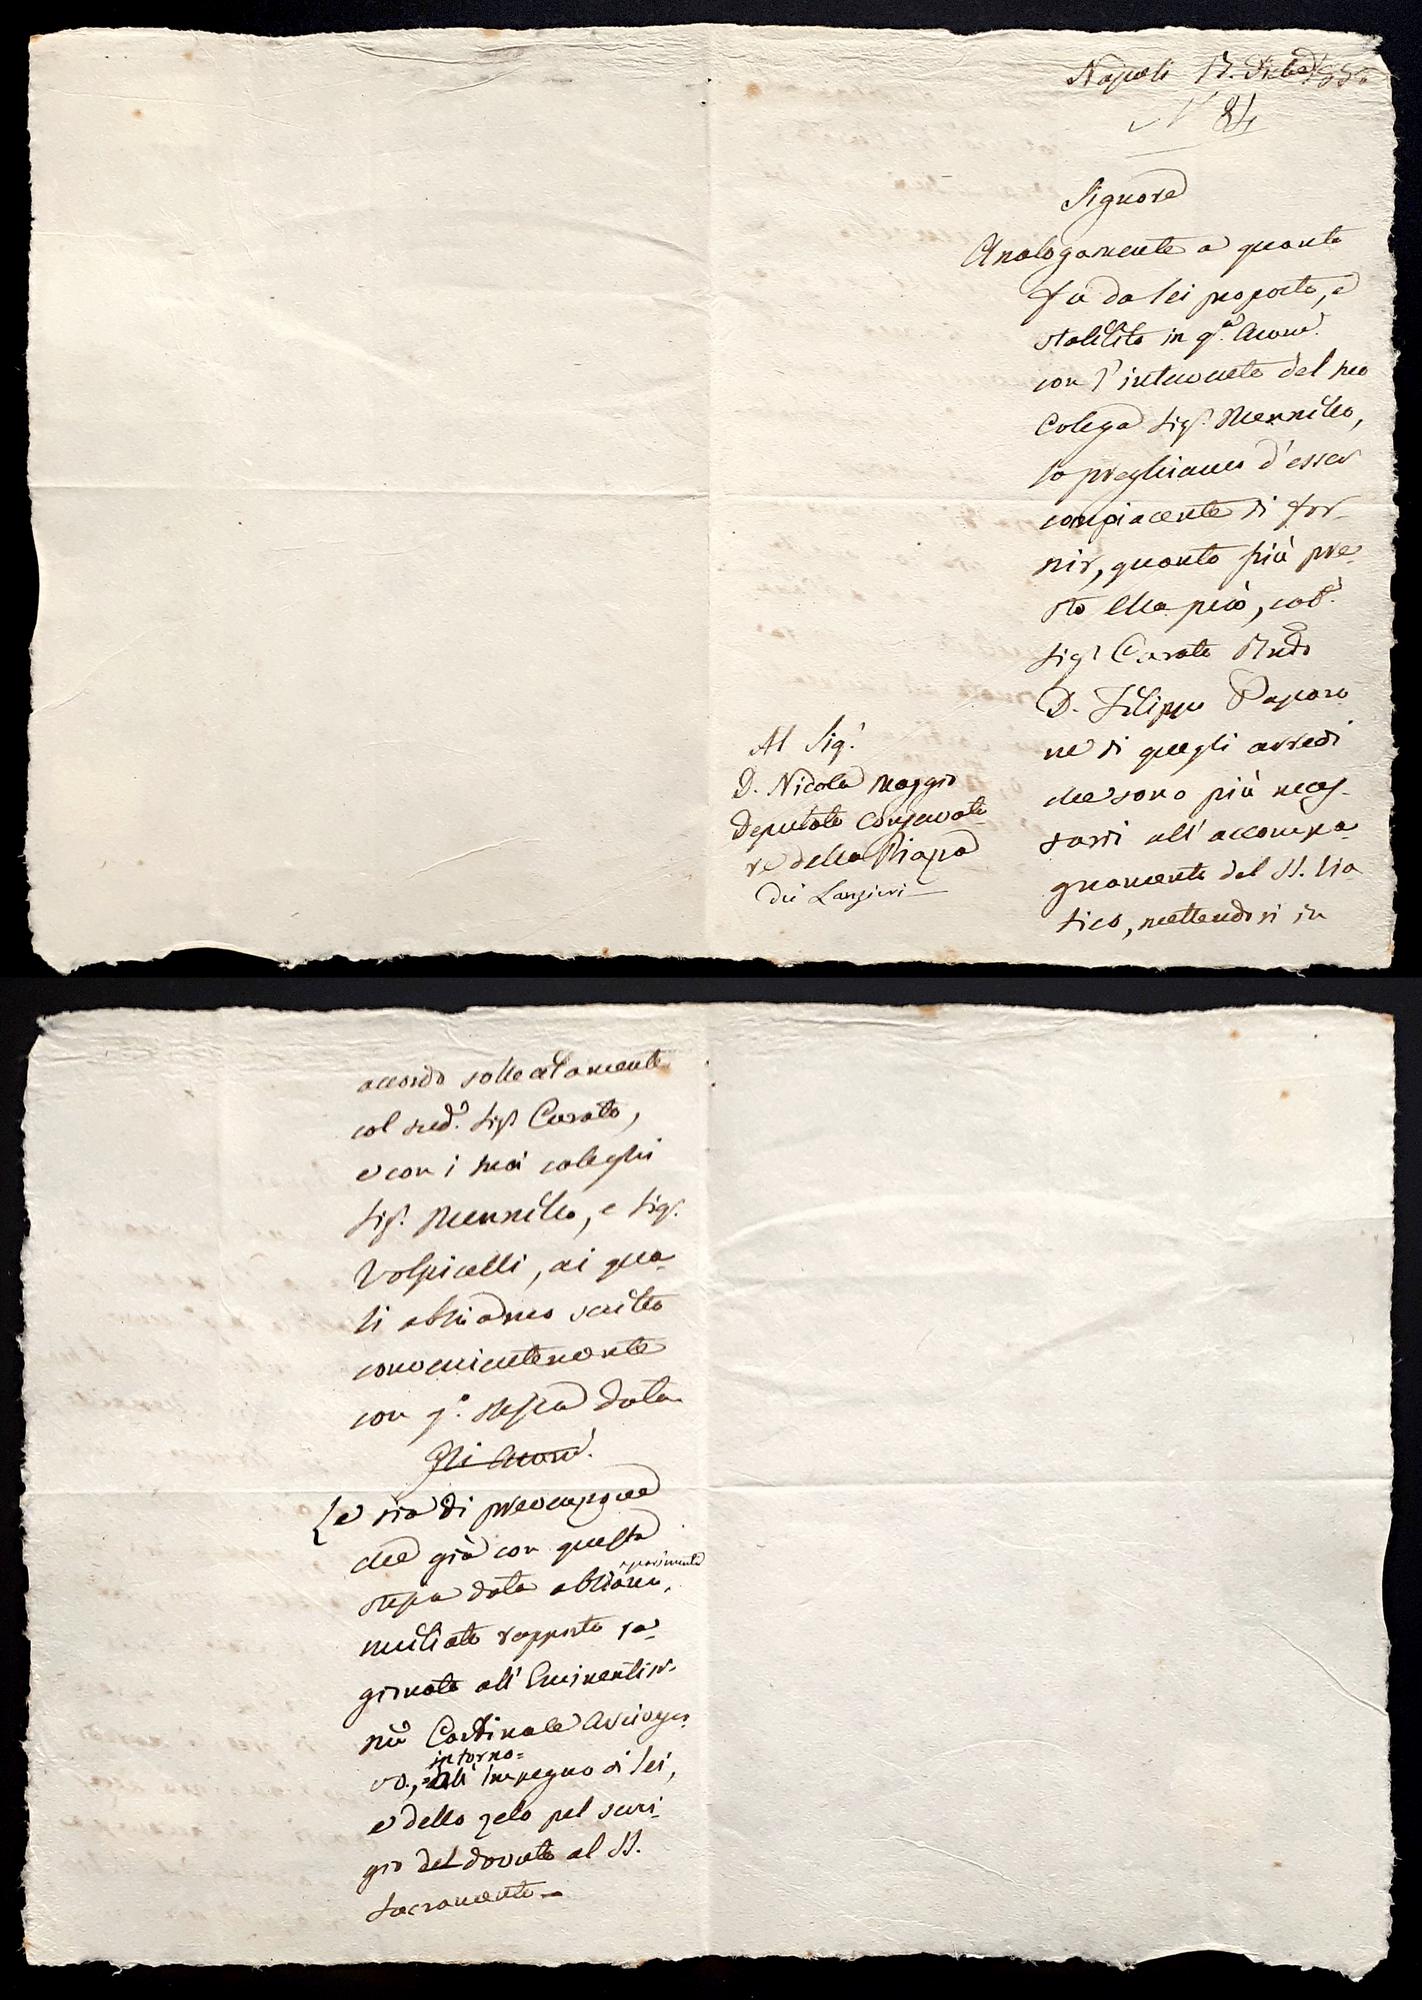 Napoli 17.
N° 84
Signore
Analogamente a quanto
fu da lei proposto, e
stabilito in q.ª
con l'intervento del suo
Colega Sig.r Mennillo,
la preghiamo d'esser
compiacente di for-
nir, quanto più pre-
sto Ella può, cot.
Sig.r Curato Rndo
D. Filippo Paparo
ne di quegli arredi
che sono più neces-
sarri all'accompa-
gnamento del SS. Via
tico, mettendosi in
Al Sig.r
D. Nicola Maggio
Deputato Conservato
re della Piazza
dei Lanzieri
accordo sollecitamente
col sud.o Sig.r Curato,
e con i suoi coleghi
Sig.r Mennillo, e Sig.r
Volpicelli, ai qua-
li abbiamo scritto
convenientemente
con q.a stessa data
Gli
e sia di prevenzione
che già con questa
stessa data abbiamo
umiliato rapporto ra-
gionato all'Eminentiss-
mo Cardinale Arcives-
vo., intorno= all'impegno di lei,
e dello zelo pel servi-
gio del dovuto al SS.
Sacramento